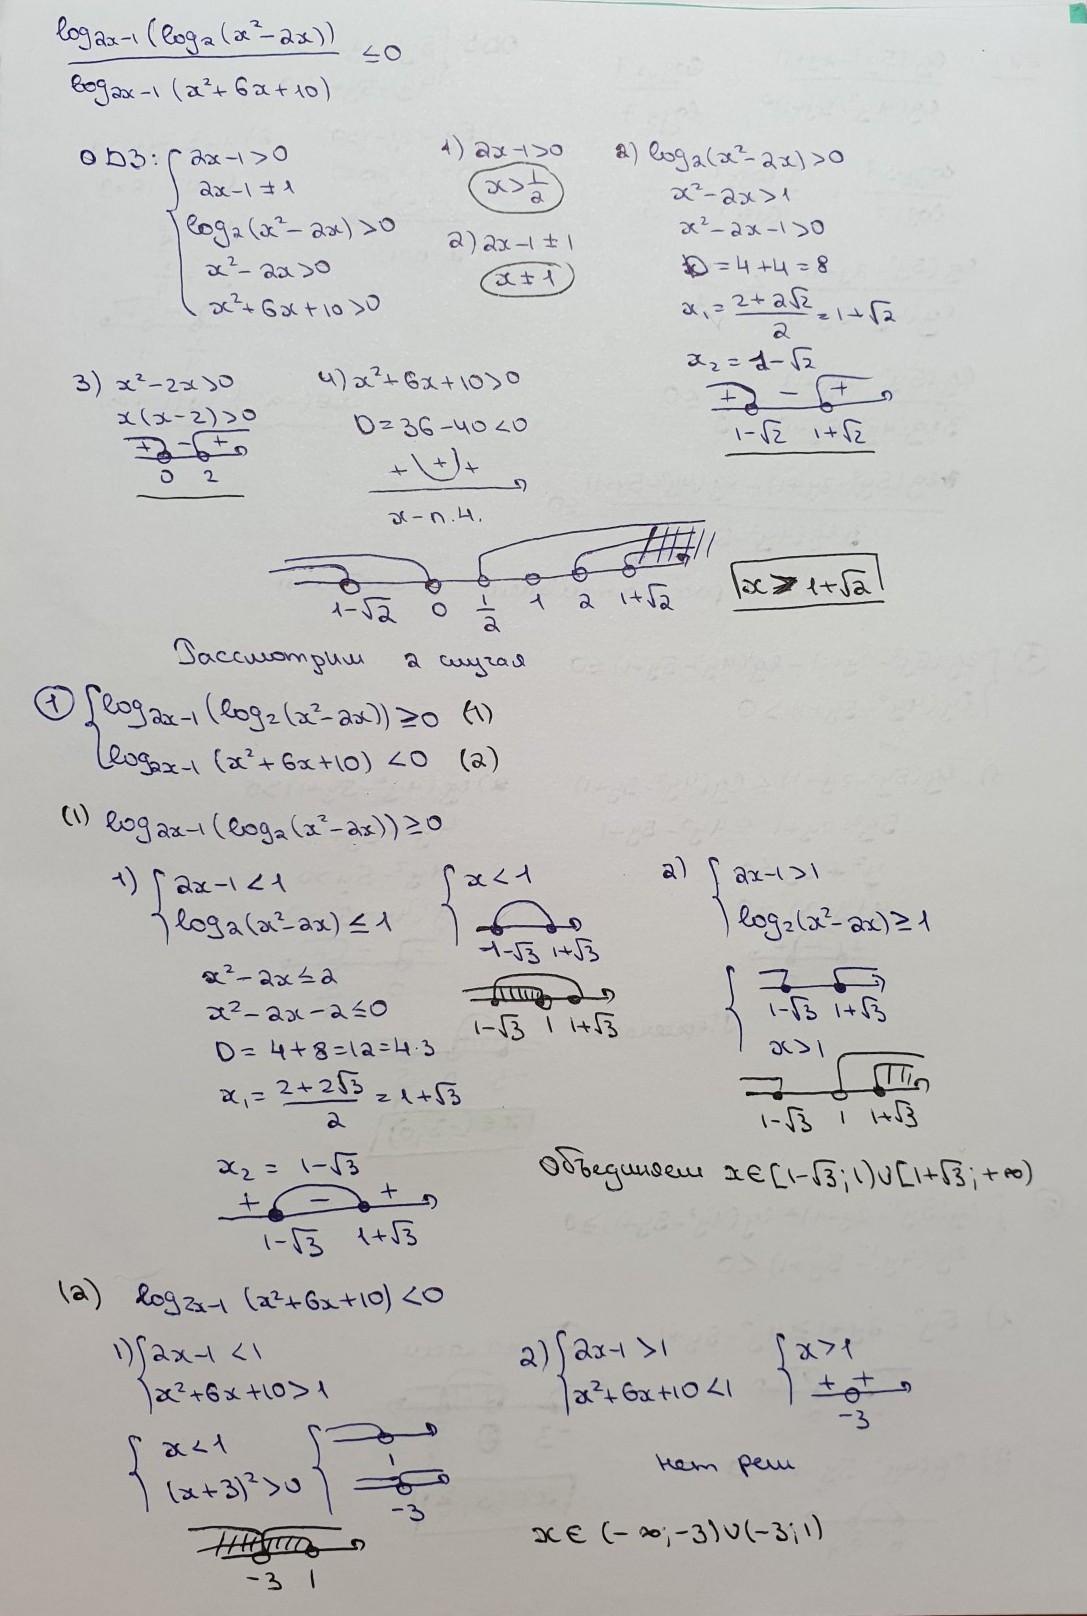 log₂ₓ₋₁(log₂(x²-2x))
――― ≤0
log₂ₓ₋₁(x²+6x+10)
ОДЗ: { 2x-1>0
2x-1≠1
log₂(x²-2x)>0
x²-2x>0
x²+6x+10>0
1) 2x-1>0
x>1/2
2) 2x-1≠1
x≠1
2) log₂(x²-2x)>0
x²-2x>1
x²-2x-1>0
D=4+4=8
x₁=(2+2√2)/2=1+√2
x₂=1-√2
+ - +
1-√2 1+√2
3) x²-2x>0
x(x-2)>0
+ - +
0 2
4) x²+6x+10>0
D=36-40<0
+ + +
x-л.ч.
1-√2 0 1/2 1 2 1+√2
x>1+√2
Рассмотрим 2 случая
① { log₂ₓ₋₁(log₂(x²-2x))≥0 (1)
log₂ₓ₋₁(x²+6x+10)<0 (2)
(1) log₂ₓ₋₁(log₂(x²-2x))≥0
1) { 2x-1<1
log₂(x²-2x)≤1
x²-2x≤2
x²-2x-2≤0
D=4+8=12=4·3
x₁=(2+2√3)/2=1+√3
x₂=1-√3
+ - +
1-√3 1+√3
{ x<1
1-√3 1+√3
1-√3 1 1+√3
2) { 2x-1>1
log₂(x²-2x)≥1
{ 1-√3 1+√3
x>1
1-√3 1 1+√3
Объединяем x∈[1-√3;1)∪[1+√3;+∞)
(2) log₂ₓ₋₁(x²+6x+10)<0
1) { 2x-1<1
x²+6x+10>1
{ x<1
(x+3)²>0
{ 1
-3
-3 1
2) { 2x-1>1
x²+6x+10<1
{ x>1
+ +
-3
нет реш
x∈(-∞;-3)∪(-3;1)